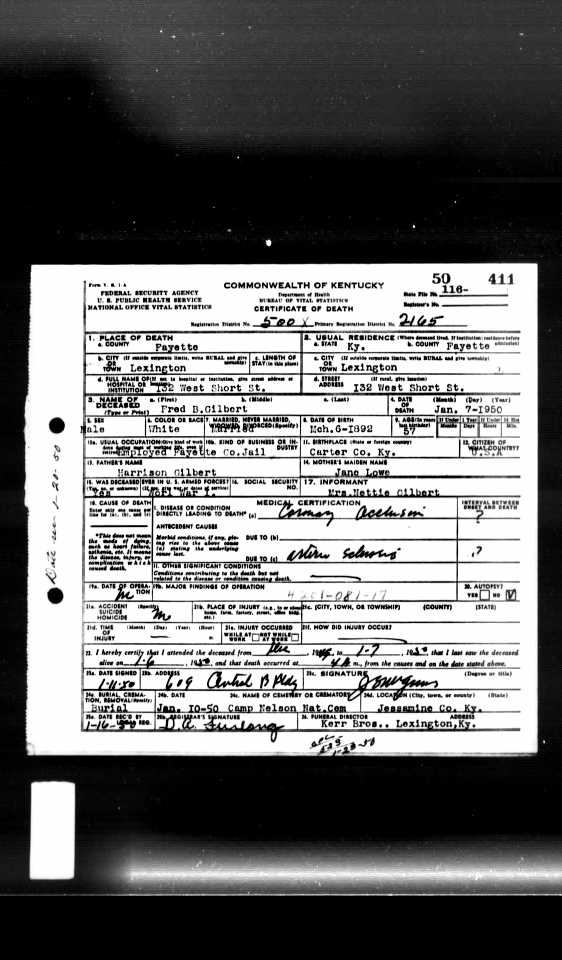 50 411
Form V. S. 1-A
COMMONWEALTH OF KENTUCKY
FEDERAL SECURITY AGENCY
U. S. PUBLIC HEALTH SERVICE
NATIONAL OFFICE VITAL STATISTICS
Department of Health
BUREAU OF VITAL STATISTICS
CERTIFICATE OF DEATH
State File No. 116-
Registrar's No.
Registration District No. 500 X Primary Registration District No. 2165
1. PLACE OF DEATH
a. COUNTY Fayette
2. USUAL RESIDENCE (Where deceased lived. If institution: residence before admission)
a. STATE Ky. b. COUNTY Fayette
b. CITY (If outside corporate limits, write RURAL and give township)
OR TOWN Lexington
c. LENGTH OF STAY (in this place)
c. CITY (If outside corporate limits, write RURAL and give township)
OR TOWN Lexington
d. FULL NAME OF (If not in hospital or institution, give street address or location)
HOSPITAL OR INSTITUTION 132 West Short St.
d. STREET ADDRESS (If rural, give location)
132 West Short St.
3. NAME OF DECEASED (Type or Print)
a. (First) b. (Middle) c. (Last)
Fred B.Gilbert
4. DATE OF DEATH (Month) (Day) (Year)
Jan. 7-1950
5. SEX
Male
6. COLOR OR RACE
White
7. MARRIED, NEVER MARRIED, WIDOWED, DIVORCED (Specify)
Married
8. DATE OF BIRTH
Mch.6-1892
9. AGE (In years last birthday)
57
If Under 1 Year Months Days
If Under 24 Hrs. Hours Min.
10a. USUAL OCCUPATION (Give kind of work done during most of working life, even if retired)
10b. KIND OF BUSINESS OR INDUSTRY
Employed Fayette Co.Jail
11. BIRTHPLACE (State or foreign country)
Carter Co. Ky.
12. CITIZEN OF WHAT COUNTRY?
U.S.A
13. FATHER'S NAME
Harrison Gilbert
14. MOTHER'S MAIDEN NAME
Jane Lowe
15. WAS DECEASED EVER IN U. S. ARMED FORCES?
(Yes, no, or unknown) (If yes, give war or dates of service)
Yes Worl War I.
16. SOCIAL SECURITY NO.
17. INFORMANT
Mrs.Nettie Gilbert
18. CAUSE OF DEATH
Enter only one cause per line for (a), (b), and (c)
MEDICAL CERTIFICATION
INTERVAL BETWEEN ONSET AND DEATH
I. DISEASE OR CONDITION
DIRECTLY LEADING TO DEATH* (a) Coronary Occlusion ?
*This does not mean the mode of dying, such as heart failure, asthenia, etc. It means the disease, injury, or complication which caused death.
ANTECEDENT CAUSES
Morbid conditions, if any, giving rise to the above cause (a) stating the underlying cause last.
DUE TO (b)
DUE TO (c) arterio sclerosis ?
II. OTHER SIGNIFICANT CONDITIONS
Conditions contributing to the death but not related to the disease or condition causing death.
19a. DATE OF OPERATION
19b. MAJOR FINDINGS OF OPERATION
4201-081-17
20. AUTOPSY?
YES NO
21a. ACCIDENT SUICIDE HOMICIDE (Specify)
21b. PLACE OF INJURY (e.g., in or about home, farm, factory, street, office bldg., etc.)
21c. (CITY, TOWN, OR TOWNSHIP) (COUNTY) (STATE)
21d. TIME OF INJURY (Month) (Day) (Year) (Hour)
21e. INJURY OCCURRED
WHILE AT WORK NOT WHILE AT WORK
21f. HOW DID INJURY OCCUR?
22. I hereby certify that I attended the deceased from Dec , 19 , to 1-7 , 1950, that I last saw the deceased
alive on 1-6 , 1950, and that death occurred at 4 A m., from the causes and on the date stated above.
23a. DATE SIGNED
1-11-50
23b. ADDRESS
609 Central B Bldg
23c. SIGNATURE (Degree or title)
24a. BURIAL, CREMATION, REMOVAL (Specify)
Burial
24b. DATE
Jan. 10-50
24c. NAME OF CEMETERY OR CREMATORY
Camp Nelson Nat.Cem
24d. LOCATION (City, town, or county) (State)
Jessamine Co. Ky.
25a. DATE REC'D BY LOCAL REG.
1-16-50
25b. REGISTRAR'S SIGNATURE
D. A. Furlong
26. FUNERAL DIRECTOR ADDRESS
Kerr Bros.. Lexington,Ky.
1-23-50